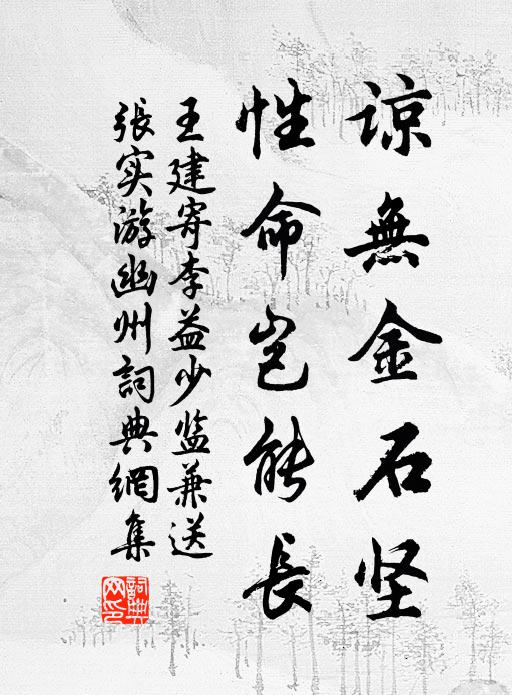 谅無金石坚
性命岂能長
王建寄李益少监兼送
張实游幽州詞典網集